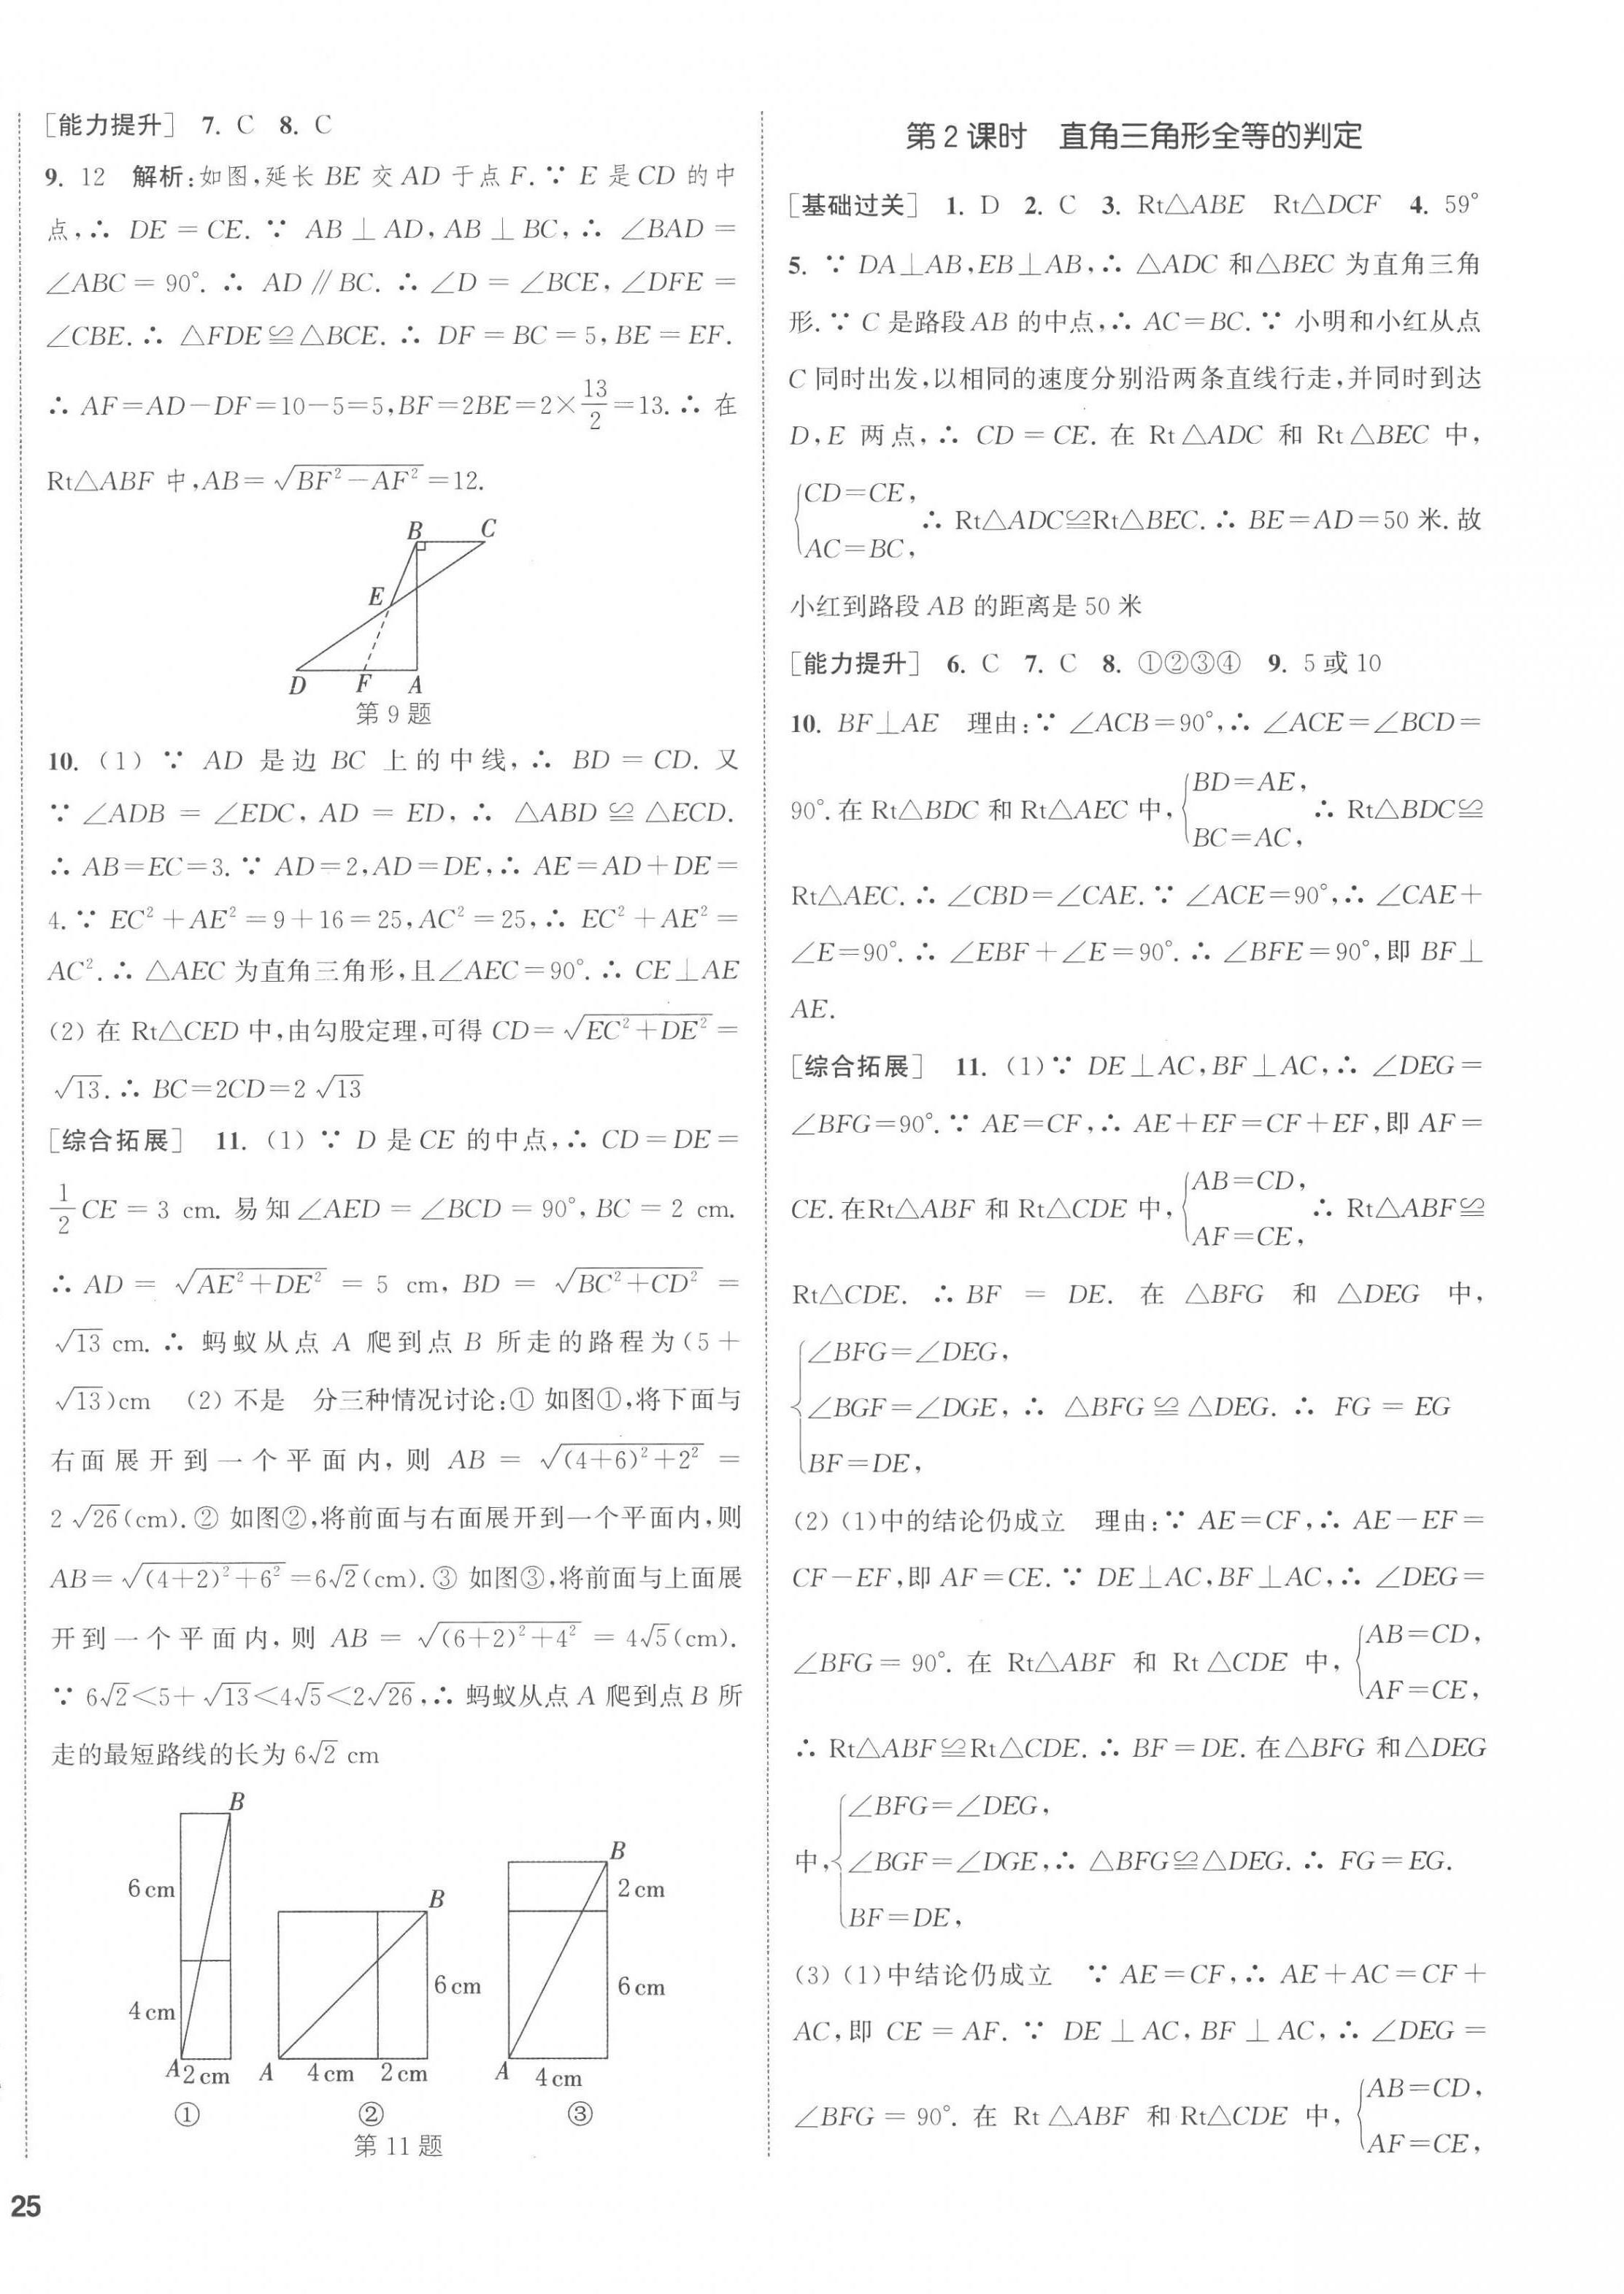 [能力提升] 7. C 8. C
9. 12 解析:如图,延长 BE 交 AD 于点 F.∵ E 是 CD 的中
点,∴ DE = CE. ∵ AB ⊥ AD, AB ⊥ BC, ∴ ∠BAD =
∠ABC = 90°. ∴ AD ∥ BC. ∴ ∠D = ∠BCE, ∠DFE =
∠CBE. ∴ △FDE ≌ △BCE. ∴ DF = BC = 5, BE = EF.
∴ AF=AD-DF=10-5=5,BF=2BE=2×13/2=13.∴ 在
Rt△ABF 中,AB=√(BF²-AF²)=12.
B C
E
D F A
第 9 题
10. (1) ∵ AD 是边 BC 上的中线, ∴ BD = CD. 又
∵ ∠ADB = ∠EDC, AD = ED, ∴ △ABD ≌ △ECD.
∴ AB=EC=3.∵ AD=2,AD=DE,∴ AE=AD+DE=
4.∵ EC²+AE²=9+16=25,AC²=25,∴ EC²+AE²=
AC².∴ △AEC 为直角三角形,且∠AEC=90°.∴ CE⊥AE
(2) 在 Rt△CED 中,由勾股定理,可得 CD=√(EC²+DE²)=
√13.∴ BC=2CD=2√13
[综合拓展] 11. (1) ∵ D 是 CE 的中点,∴ CD=DE=
1/2 CE = 3 cm. 易知∠AED = ∠BCD = 90°, BC = 2 cm.
∴ AD = √(AE²+DE²) = 5 cm, BD = √(BC²+CD²) =
√13 cm. ∴ 蚂蚁从点 A 爬到点 B 所走的路程为(5+
√13)cm (2) 不是 分三种情况讨论:① 如图①,将下面与
右面展开到一个平面内,则 AB = √((4+6)²+2²) =
2√26(cm).② 如图②,将前面与右面展开到一个平面内,则
AB=√((4+2)²+6²)=6√2(cm).③ 如图③,将前面与上面展
开到一个平面内,则 AB = √((6+2)²+4²) = 4√5(cm).
∵ 6√2<5+√13<4√5<2√26,∴ 蚂蚁从点 A 爬到点 B 所
走的最短路线的长为 6√2 cm
B
6 cm
4 cm
A 2 cm
①
B
6 cm
A 4 cm 2 cm
②
B
2 cm
6 cm
A 4 cm
③
第 11 题
25
第 2 课时 直角三角形全等的判定
[基础过关] 1. D 2. C 3. Rt△ABE Rt△DCF 4. 59°
5. ∵ DA⊥AB,EB⊥AB,∴ △ADC 和△BEC 为直角三角
形.∵ C 是路段 AB 的中点,∴ AC=BC.∵ 小明和小红从点
C 同时出发,以相同的速度分别沿两条直线行走,并同时到达
D,E 两点,∴ CD = CE. 在 Rt△ADC 和 Rt△BEC 中,
{CD=CE,
AC=BC, ∴ Rt△ADC≌Rt△BEC.∴ BE=AD=50 米.故
小红到路段 AB 的距离是 50 米
[能力提升] 6. C 7. C 8. ①②③④ 9. 5 或 10
10. BF⊥AE 理由:∵ ∠ACB=90°,∴ ∠ACE=∠BCD=
90°.在 Rt△BDC 和 Rt△AEC 中,{BD=AE, BC=AC, ∴ Rt△BDC≌
Rt△AEC.∴ ∠CBD=∠CAE.∵ ∠ACE=90°,∴ ∠CAE+
∠E=90°.∴ ∠EBF+∠E=90°.∴ ∠BFE=90°,即 BF⊥
AE.
[综合拓展] 11. (1)∵ DE⊥AC,BF⊥AC,∴ ∠DEG=
∠BFG=90°.∵ AE=CF,∴ AE+EF=CF+EF,即 AF=
CE.在Rt△ABF 和 Rt△CDE 中,{AB=CD, AF=CE, ∴ Rt△ABF≌
Rt△CDE. ∴ BF = DE. 在 △BFG 和 △DEG 中,
{∠BFG=∠DEG,
∠BGF=∠DGE, ∴ △BFG ≌ △DEG. ∴ FG = EG
BF=DE,
(2) (1)中的结论仍成立 理由:∵ AE=CF,∴ AE-EF=
CF-EF,即 AF=CE.∵ DE⊥AC,BF⊥AC,∴ ∠DEG=
∠BFG = 90°. 在 Rt△ABF 和 Rt△CDE 中, {AB=CD, AF=CE,
∴ Rt△ABF≌Rt△CDE.∴ BF=DE.在△BFG 和△DEG
{∠BFG=∠DEG,
中, ∠BGF=∠DGE,∴ △BFG≌△DEG.∴ FG=EG.
BF=DE,
(3) (1)中结论仍成立 ∵ AE=CF,∴ AE+AC=CF+
AC,即 CE = AF. ∵ DE ⊥ AC, BF ⊥ AC, ∴ ∠DEG =
∠BFG = 90°. 在 Rt△ABF 和 Rt△CDE 中, {AB=CD, AF=CE,